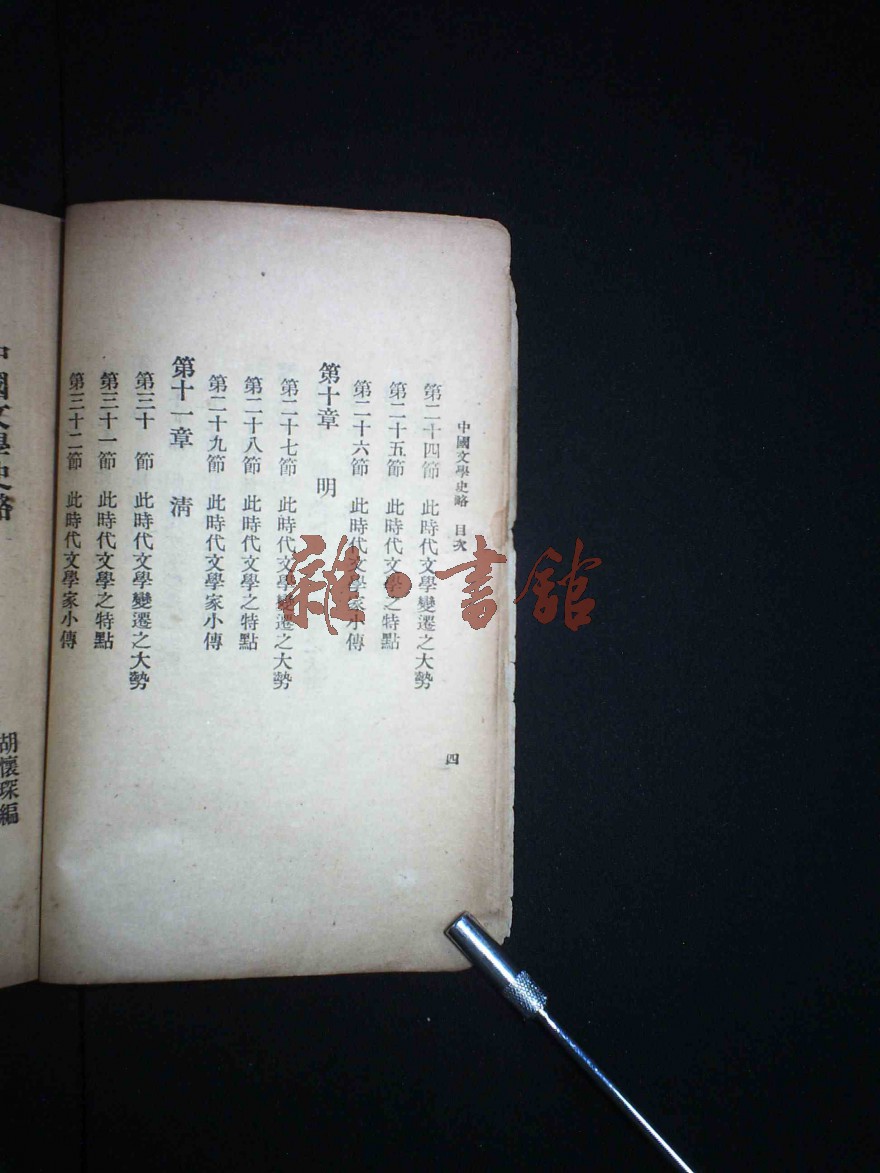 中國文學史略 目次
四
第二十四節 此時代文學變遷之大勢
第二十五節 此時代文學之特點
第二十六節 此時代文學家小傳
第十章 明
第二十七節 此時代文學變遷之大勢
第二十八節 此時代文學之特點
第二十九節 此時代文學家小傳
第十一章 清
第三十節 此時代文學變遷之大勢
第三十一節 此時代文學之特點
第三十二節 此時代文學家小傳
中國文學史略
胡懷琛編
雜·書館